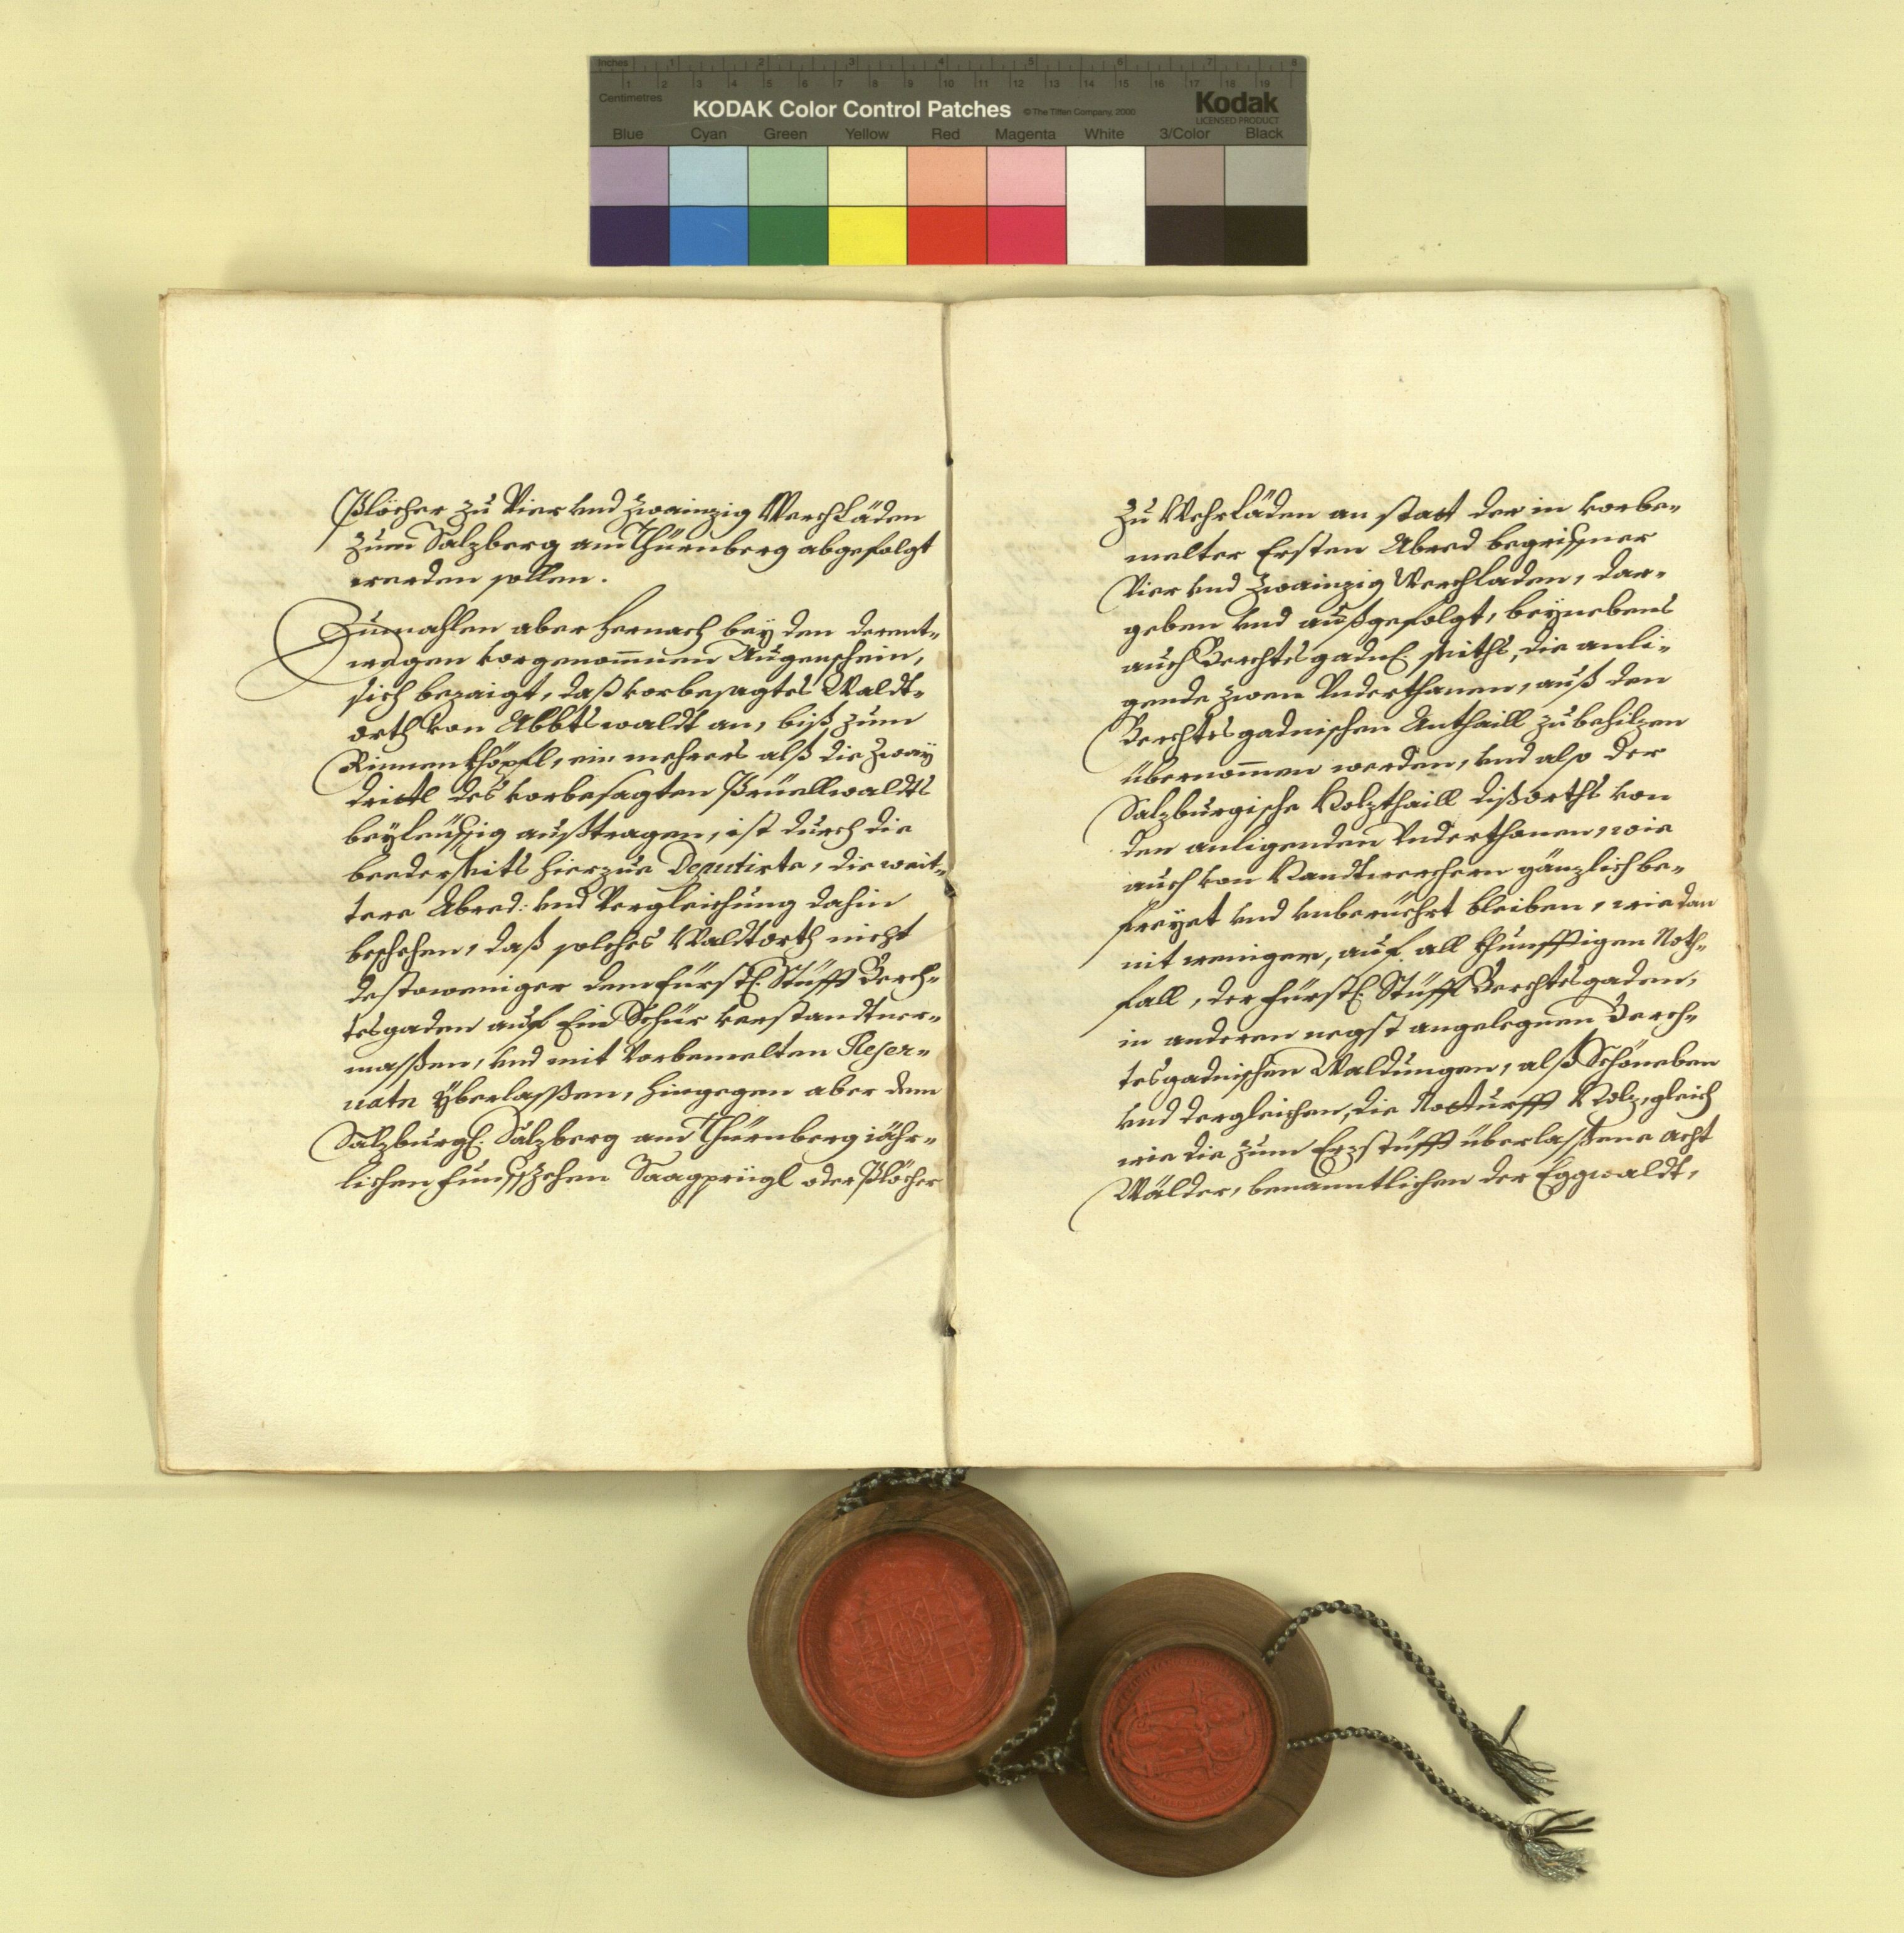 Inches 1 2 3 4 5 6 7 8
1 2 3 4 5 6 7 8 9 10 11 12 13 14 15 16 17 18 19
Centimetres
KODAK Color Control Patches © The Tiffen Company, 2000 Kodak
LICENSED PRODUCT
Blue Cyan Green Yellow Red Magenta White 3/Color Black
Plöcher zu Vier vnd Zwainzig Werchläden
zum Salzberg am Thürnberg abgefolgt
werden sollen.
Zumahlen aber hernach bey den derent-
wegen vorgenommen Augenschein,
sich bezaigt, daß vorbesagtes Waldt-
orth von Abbtswaldt an, biß zum
Rinnenkhöpfl, ein mehrers alß die zway
drittl des vorbesagten Prüellwaldts
beyleüffig außtragen, ist durch die
beederseits hierzue Deputirte, die weit-
tere Abred: vnd Vergleichung dahin
beschehen, daß solches Waldtorth nicht
destoweniger dem Fürstl: Stüfft Berch-
tesgaden auf Ein Schür verstandtner-
massen, vnd mit Vorbemelten Reser-
uate yberlassen, hingegen aber dem
Salzburgl: Salzberg am Thürnberg iähr-
lichen Funffzehen Saagprügl oder Plöcher
Zu Wehrläden an statt der in vorbe-
melter Ersten Abred begriffner
Vier vnd Zwainzig Werchladen, dar-
geben vnd außgefolgt, beynebens
auch Berchtesgadnl: seiths, die anli-
gende zwen Vnderthanen, auß den
Berchtesgadnischen Anthaill zubehilzen
übernommen werden, vnd also der
Salzburgische Holzthaill dißorths von
den anligenden Vnderthanen, wie
auch von Handtwerchern gänzlich be-
freyet vnd vnberüehrt bleiben, wie dan
nit weniger, auf all khunfftigen Noth-
fall, der Fürstl: Stüfft Berchtesgaden,
in anderen negst angelegnen Berch-
tesgadnischen Waldungen, alß Schöneben
vnd dergleichen, die Notturfft Holz, gleich
wie die zum Erzstüfft überlassene acht
Wälder, benanntlichen der Eggwaldt,